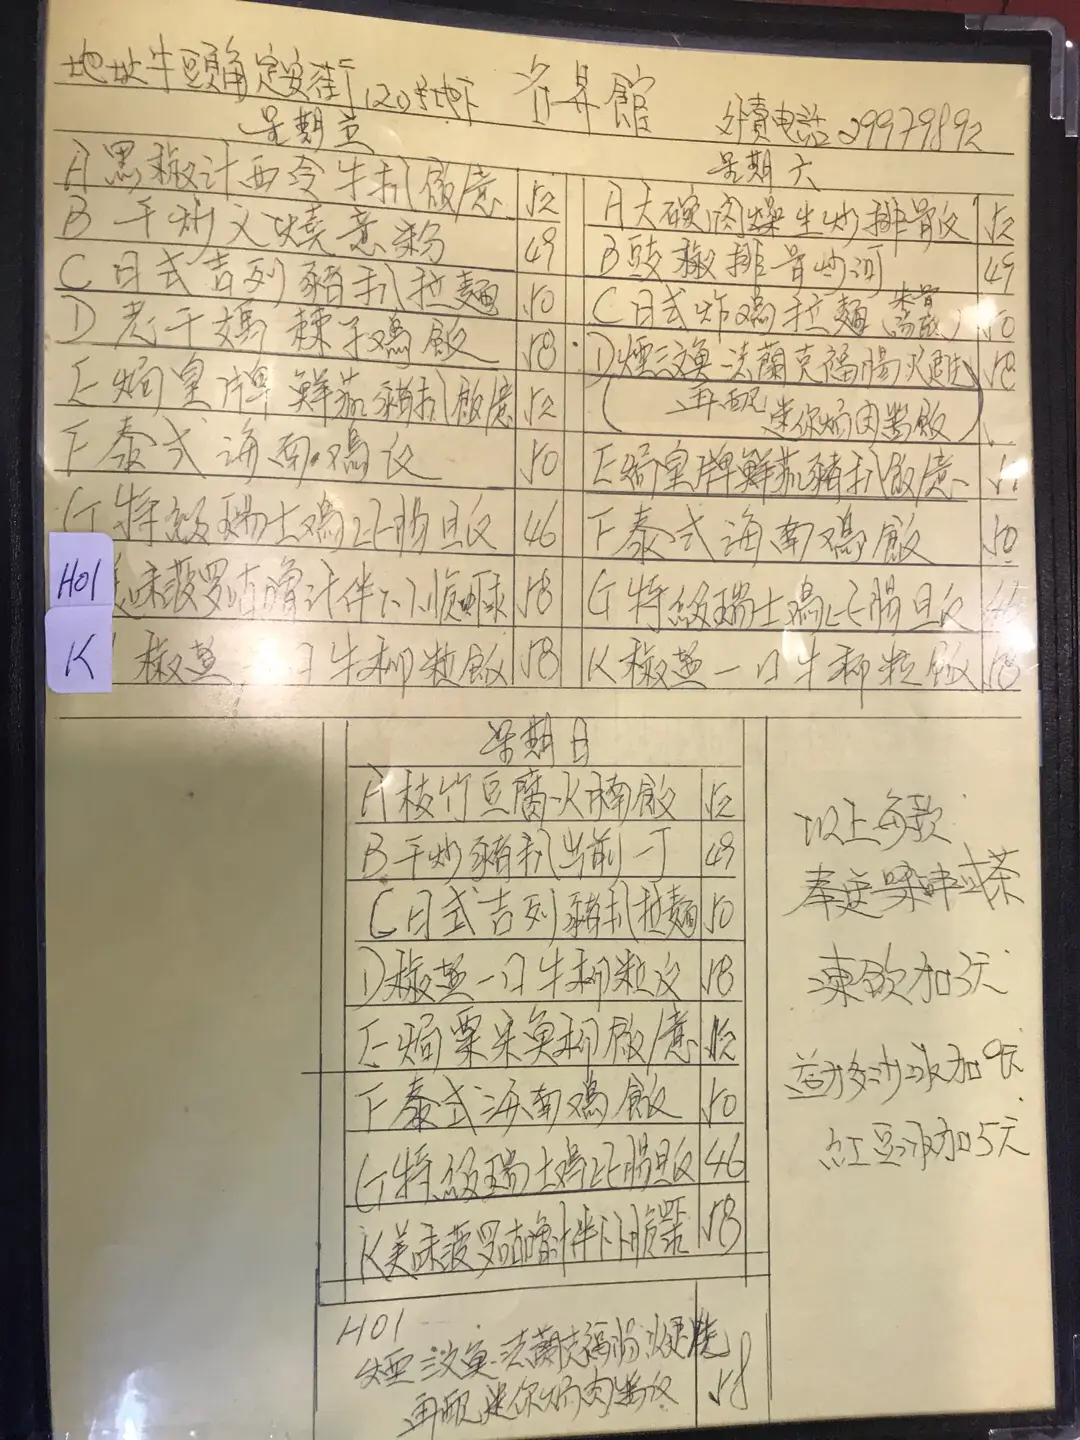 地址牛頭角定安街120號地下
昇館
外賣電話29979892
星期五
A黑椒汁西冷牛扒飯/意 52
B干炒叉燒意粉 49
C日式吉列豬扒拉麵 50
D老干媽辣子鳮飯 58
E焗皇牌鮮茄豬扒飯/意 52
F泰式海南鳮飯 50
G特級瑞士鳮比腸旦飯 46
H01
味菠罗咕嚕汁伴 脆蝦球 58
K 椒燕一口牛柳粒飯 58
星期六
A大碗肉燥生炒排骨飯 52
B豉椒排骨炒河 49
C日式炸鳮拉麵 50
D煙三文魚法蘭克福腸 58
再配
迷你焗肉醬飯
E焗皇牌鮮茄豬扒飯/意
F泰式海南鳮飯 50
G特級瑞士鳮比腸旦飯 46
K椒燕一口牛柳粒飯 58
星期日
A枝竹豆腐火腩飯 52
B干炒豬扒出前一丁 49
C日式吉列豬扒拉麵 50
D椒燕一口牛柳粒飯 58
E焗粟米魚柳飯/意 52
F泰式海南鳮飯 50
G特級瑞士鳮比腸旦飯 46
K美味菠罗咕嚕汁伴 脆 58
以上每款
奉送 啡或茶
凍飲加3元
益力多沙冰加9元
紅豆冰加5元
H01
煙三文魚法蘭克福腸
再配迷你焗肉醬飯 58